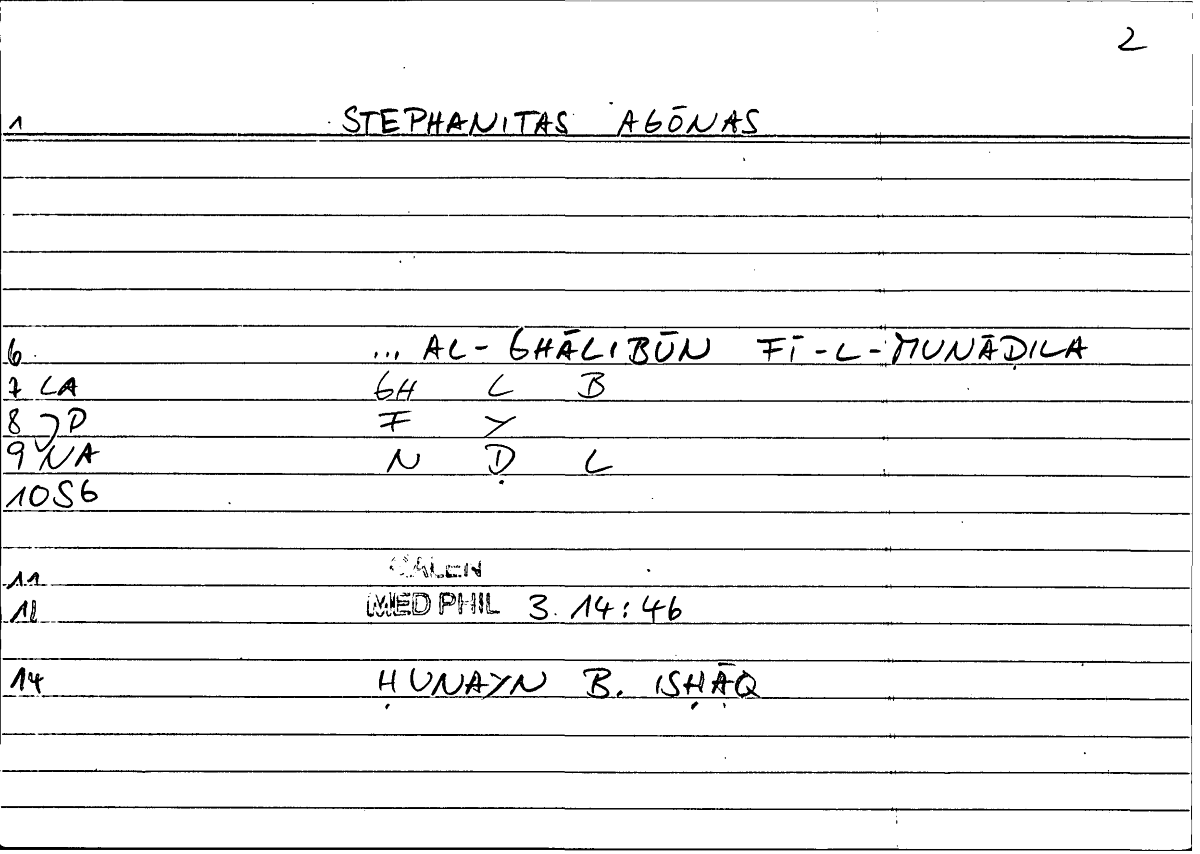 2
1 STEPHANITAS AGŌNAS
6 ... AL-GHĀLIBŪN FĪ-L-MUNĀḌILA
7 LA GH L B
8 JP F Y
9 NA N Ḍ L
10 SG
11 GALEN
12 MED PHIL 3.14:46
14 ḤUNAYN B. ISḤĀQ